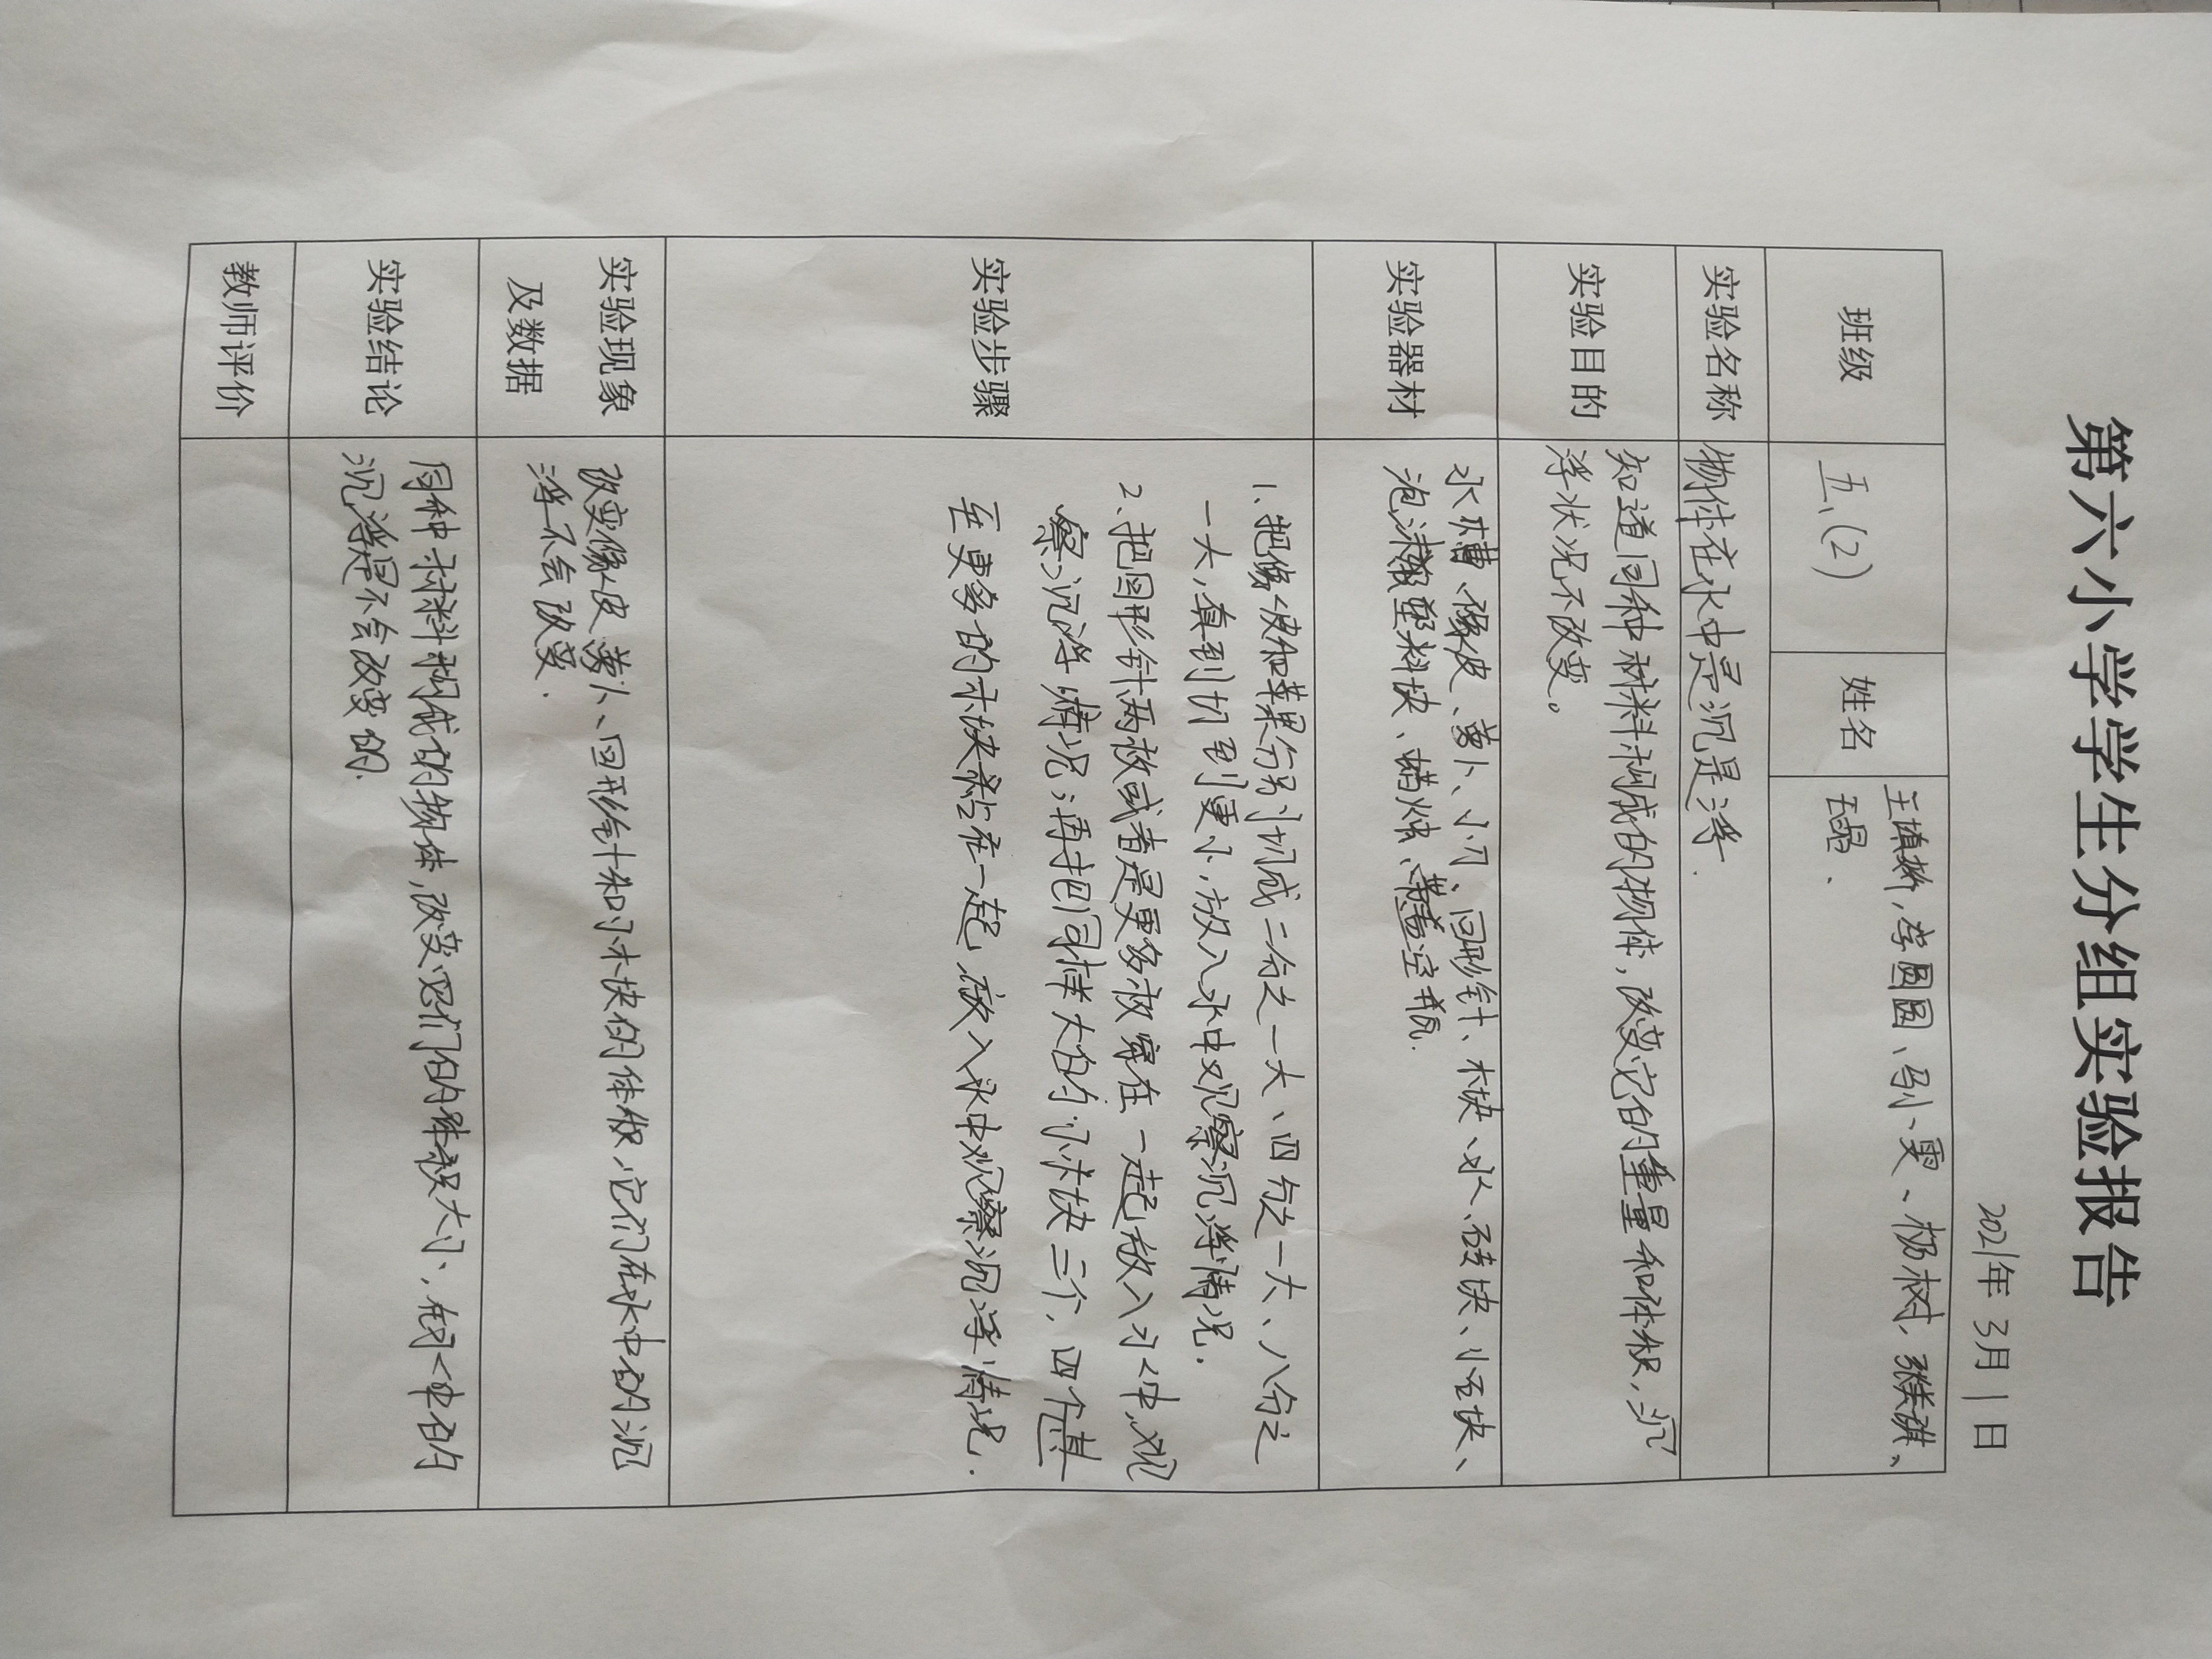 第六小学学生分组实验报告
2021年 3月1日
班级 五、(2) 姓名 李圆圆、马小雯、杨树,
实验名称 物体在水中是沉是浮.
实验目的 知道同种材料构成的物体,改变它的重量和体积,沉
浮状况不改变。
实验器材 水槽、橡皮、萝卜、小刀、回形针、木块、水、砖块、小石块、
泡沫塑料块、蜡烛、带盖空瓶.
实验步骤
1、把橡皮和苹果分别切成二分之一大、四分之一大、八分之
一大,直到切到更小,放入水中观察沉浮情况.
2、把回形针两枚或者是更多枚穿在一起放入水中,观
察沉浮情况;再把同样大的木块三个、四个甚
至更多的木块粘在一起,放入水中观察沉浮情况.
实验现象
及数据
改变像皮、萝卜、回形针和木块的体积,它们在水中的沉
浮不会改变.
实验结论
同种材料构成的物体,改变它们的体积大小,在水中的
沉浮是不会改变的.
教师评价